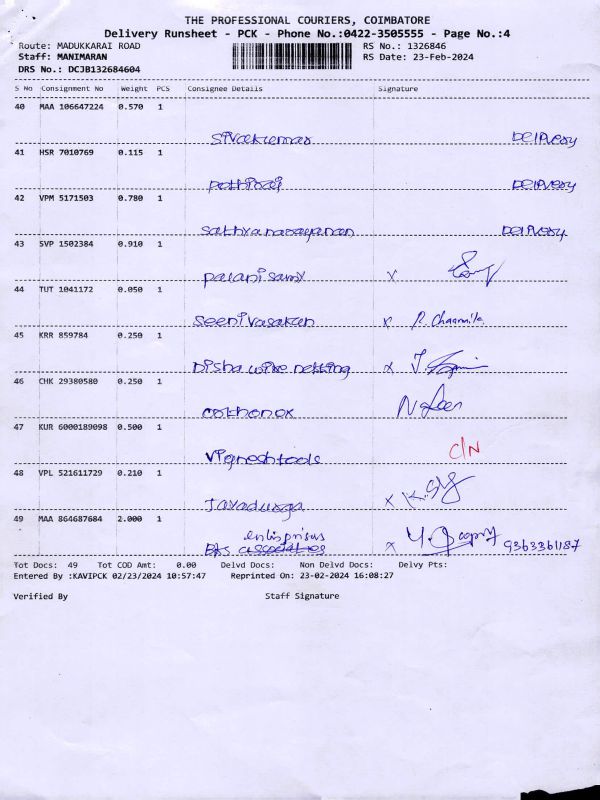 THE PROFESSIONAL COURIERS, COIMBATORE
Delivery Runsheet - PCK - Phone No.:0422-3505555 - Page No.:4
Route: MADUKKARAI ROAD RS No.: 1326846
Staff: MANIMARAN RS Date: 23-Feb-2024
DRS No.: DCJB132684604
S No Consignment No Weight PCS Consignee Details Signature
40 MAA 106647224 0.570 1
Sivakumar Delivery
41 HSR 7010769 0.115 1
pothiraj Delivery
42 VPM 5171503 0.780 1
sathyanarayanan Delivery
43 SVP 1502384 0.910 1
palanisamy x
44 TUT 1041172 0.050 1
seenivasakan x P. Chaamila
45 KRR 859784 0.250 1
Disha wire netting x
46 CHK 29380580 0.250 1
47 KUR 6000189098 0.500 1
Vignesh tools C/N
48 VPL 521611729 0.210 1
Jayadurga x
49 MAA 864687684 2.000 1
BKS associates x 9363361187
Tot Docs: 49 Tot COD Amt: 0.00 Delvd Docs: Non Delvd Docs: Delvy Pts:
Entered By :KAVIPCK 02/23/2024 10:57:47 Reprinted On: 23-02-2024 16:08:27
Verified By Staff Signature